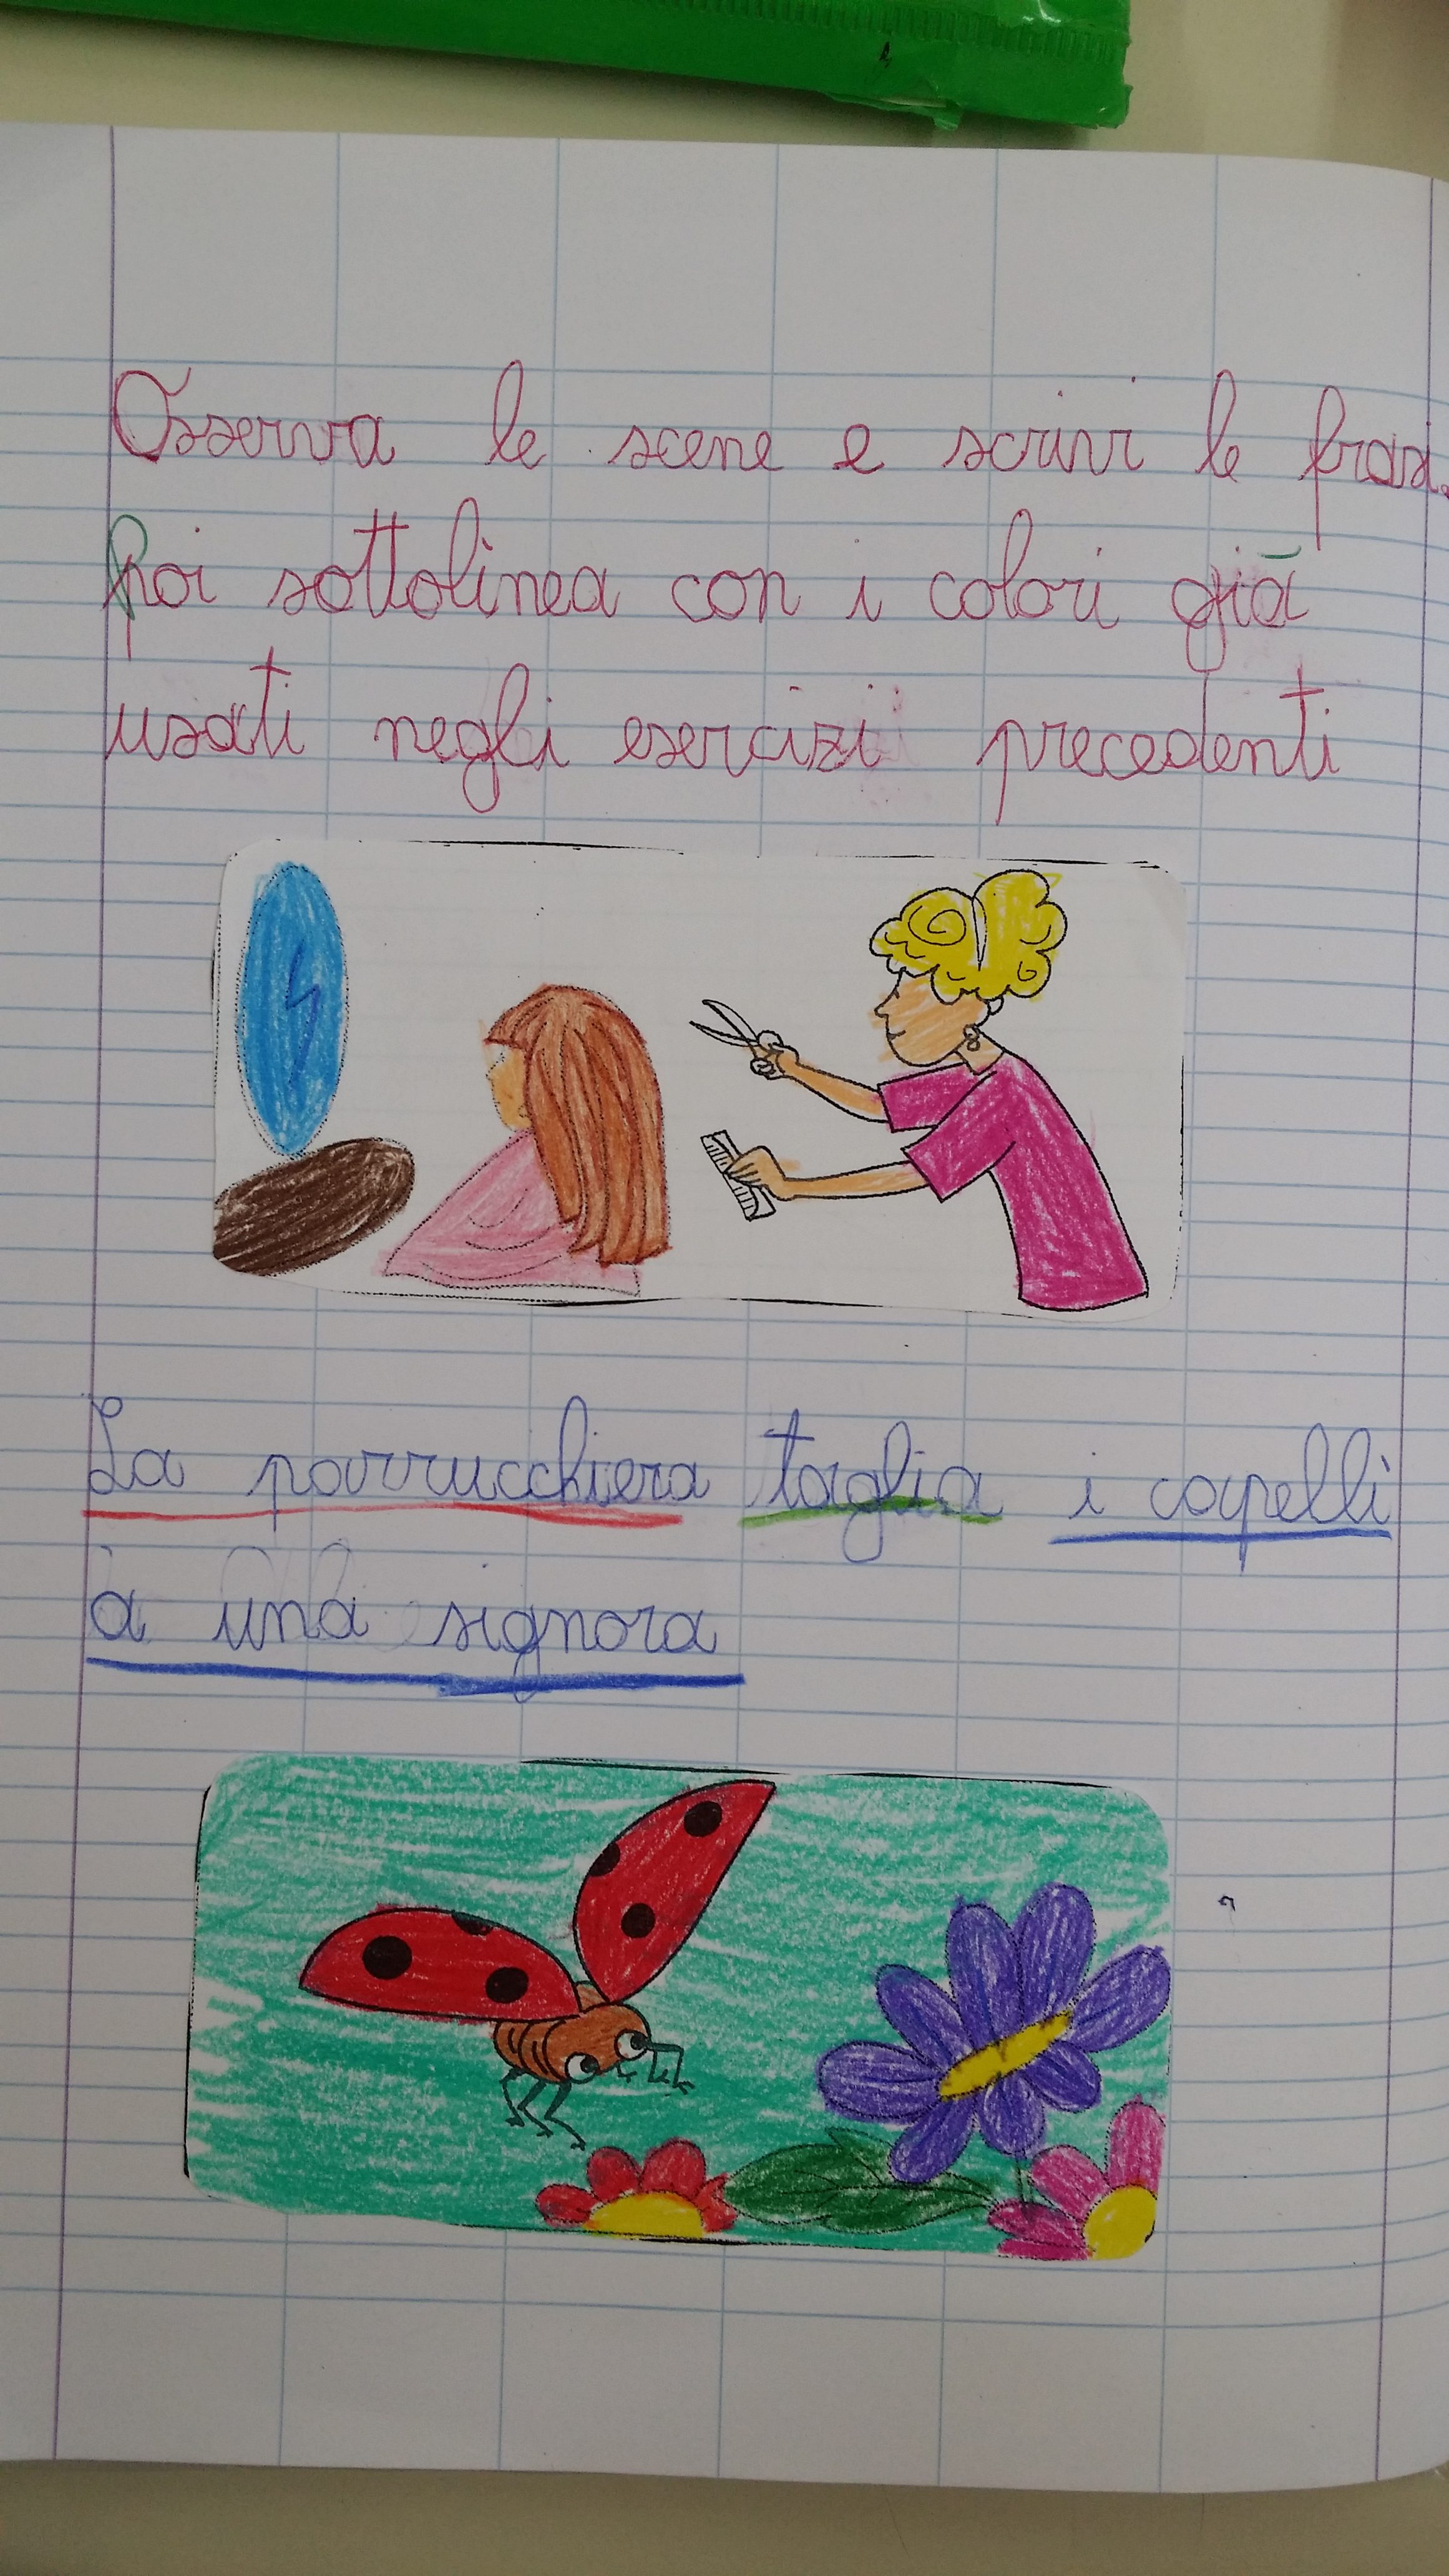 Osserva le scene e scrivi le frasi.
Poi sottolinea con i colori già
usati negli esercizi precedenti
La parrucchiera taglia i capelli
a una signora